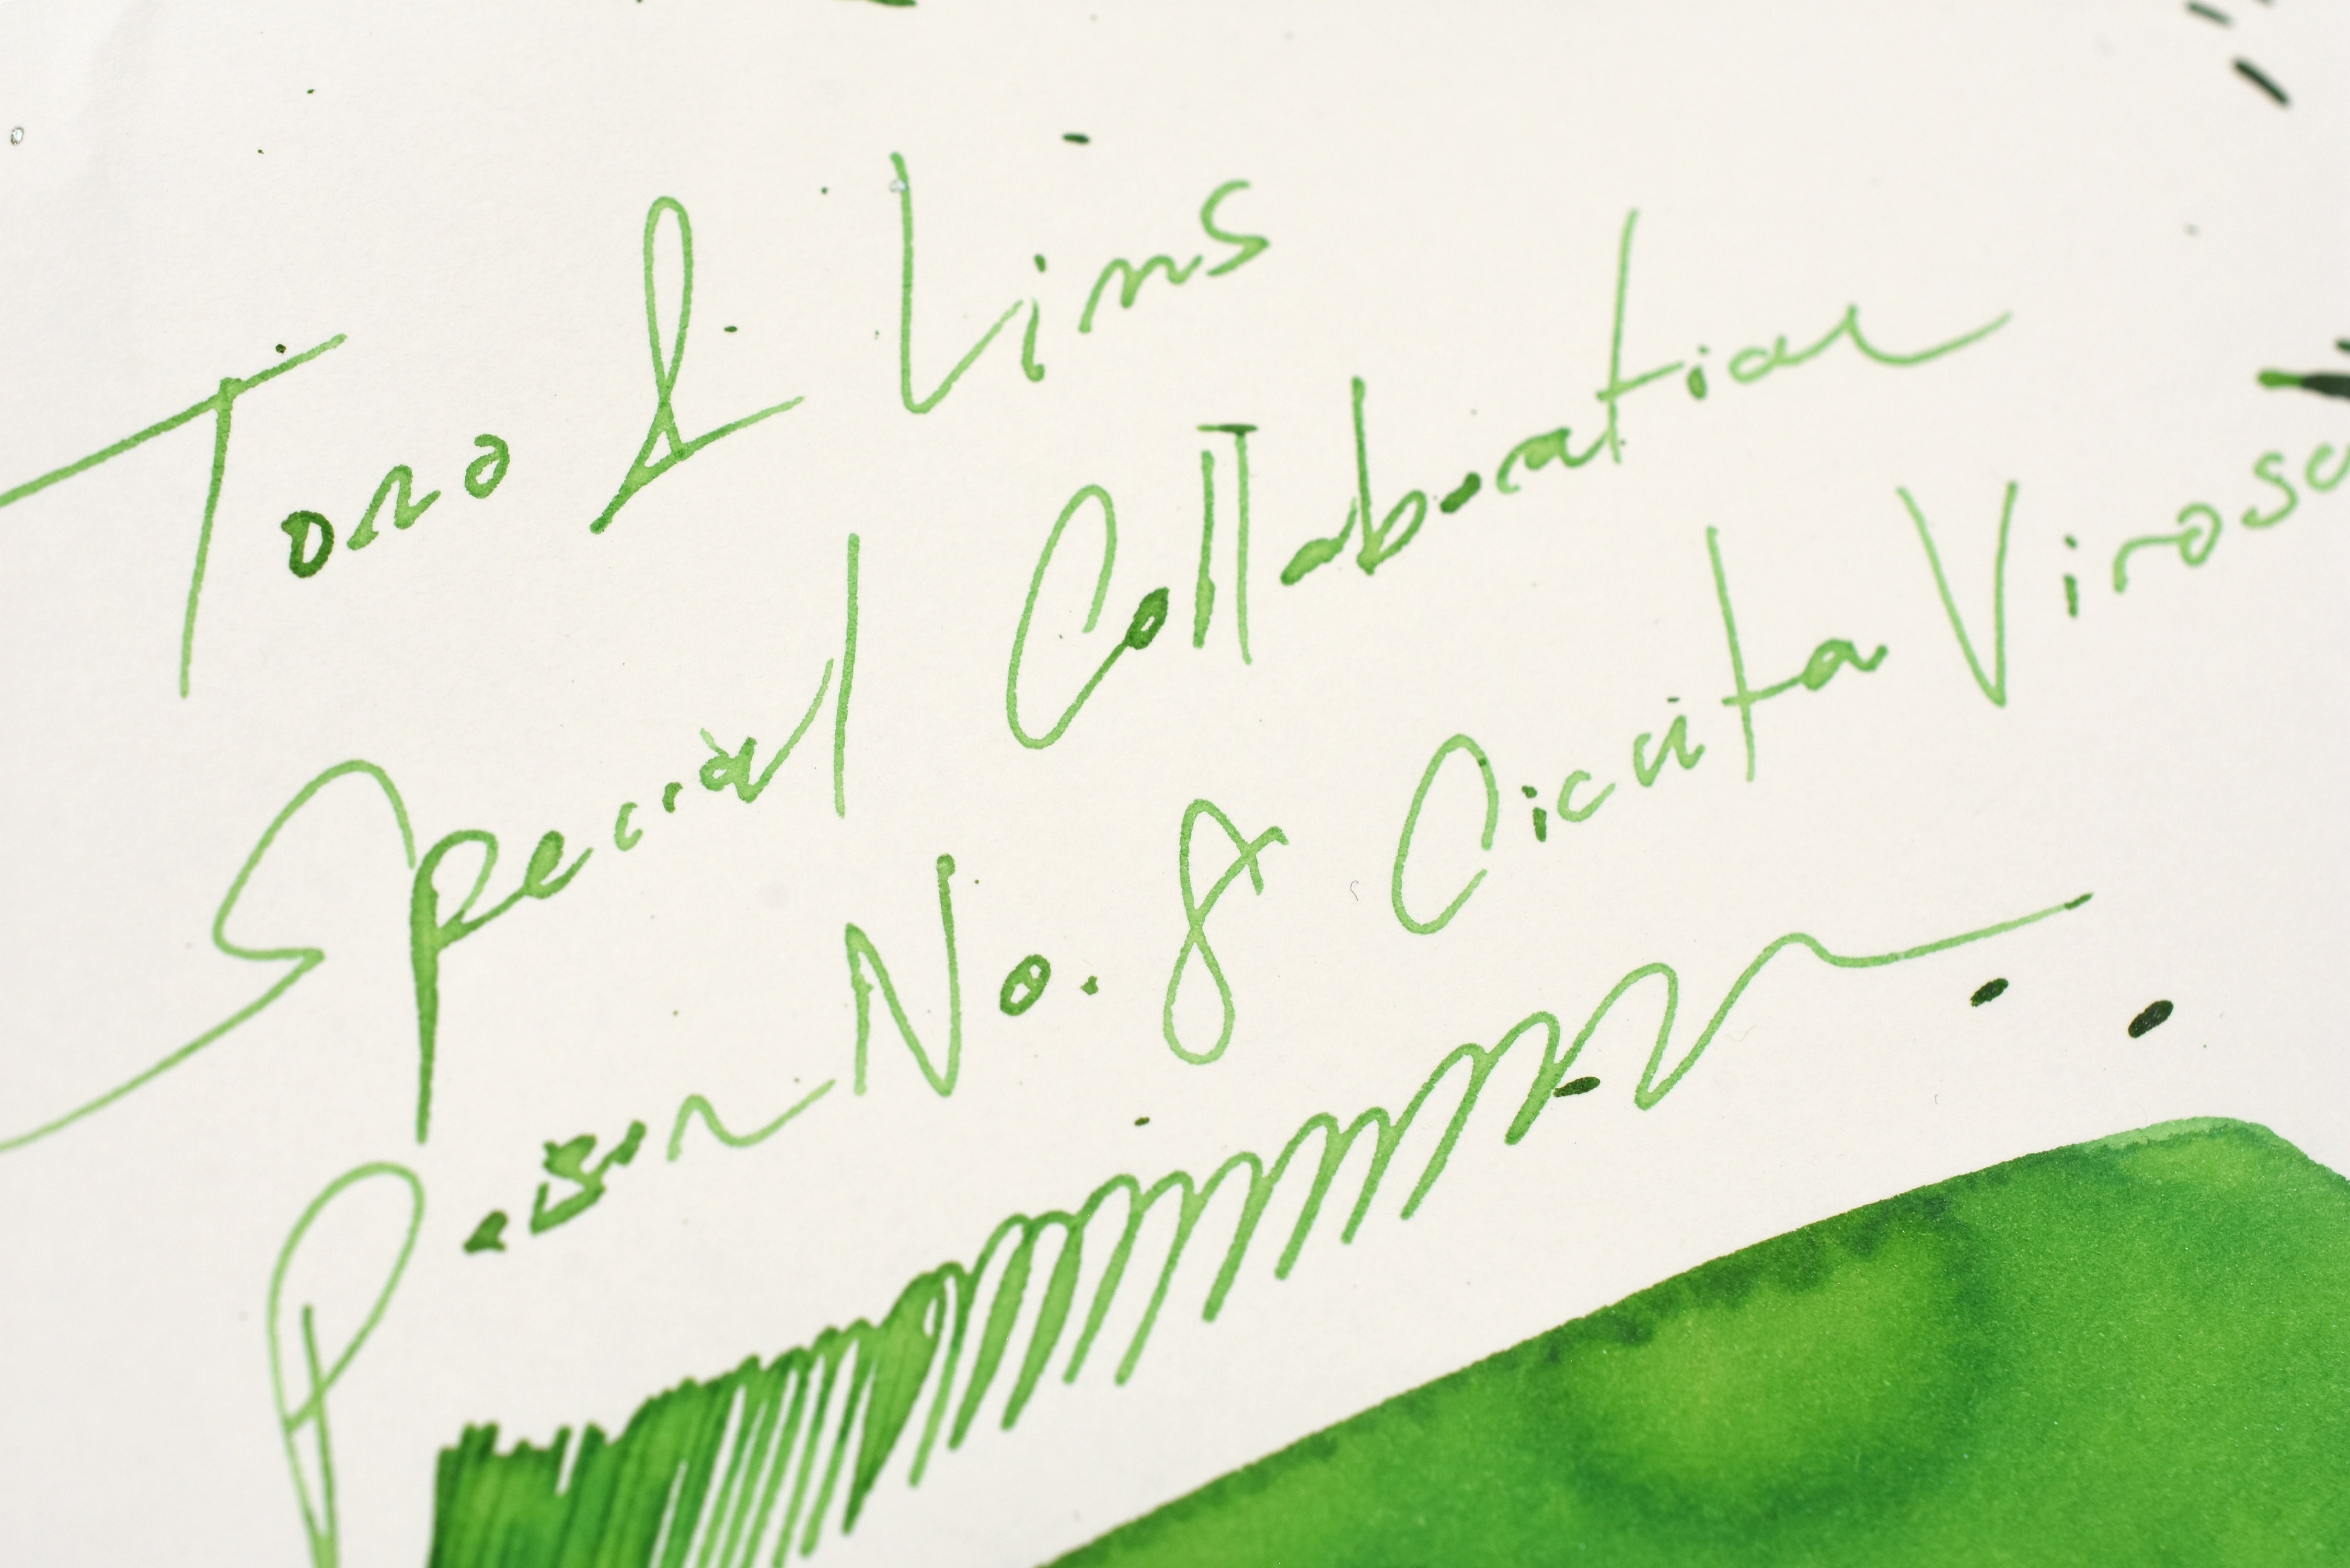 Tono & Lims
Special Collaboration
Poison No. 8 Cicuta Virosa